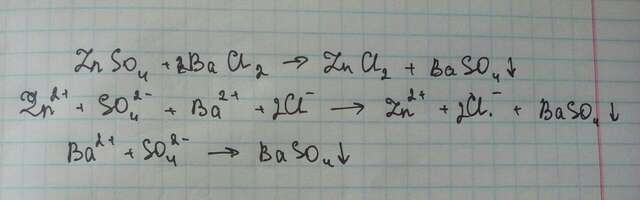 ZnSO₄ + BaCl₂ → ZnCl₂ + BaSO₄↓
Zn²⁺ + SO₄²⁻ + Ba²⁺ + 2Cl⁻ → Zn²⁺ + 2Cl⁻ + BaSO₄↓
Ba²⁺ + SO₄²⁻ → BaSO₄↓